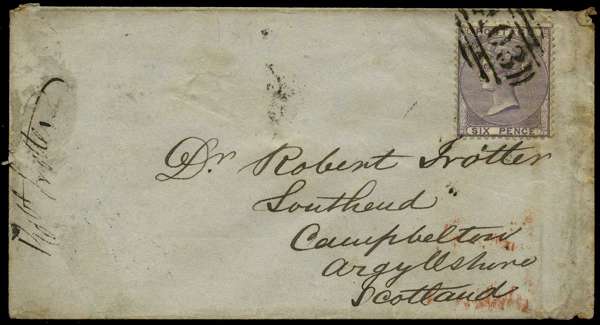 SIX PENCE
Dr Robert Trotter
Southend
Campbelton
Argyllshire
Scotland